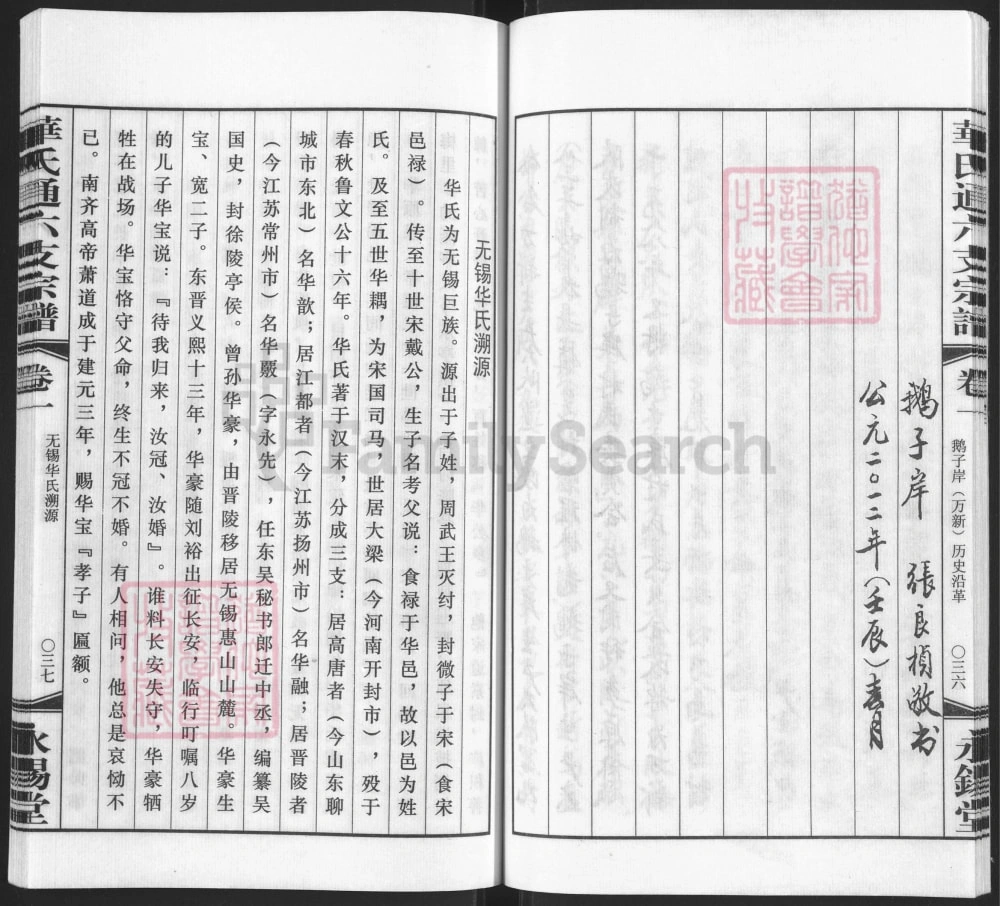 華氏通六支宗譜
卷一
鹅子岸（万新）历史沿革
〇三六
永錫堂
鹅子岸 張良楨敬书
公元二〇一二年（壬辰）春月
无锡华氏溯源
华氏为无锡巨族。源出于子姓，周武王灭纣，封微子于宋（食宋
邑禄）。传至十世宋戴公，生子名考父说：食禄于华邑，故以邑为姓
氏。及至五世华耦，为宋国司马，世居大梁（今河南开封市），殁于
春秋鲁文公十六年。华氏著于汉末，分成三支：居高唐者（今山东聊
城市东北）名华歆；居江都者（今江苏扬州市）名华融；居晋陵者
（今江苏常州市）名华覈（字永先），任东吴秘书郎迁中丞，编纂吴
国史，封徐陵亭侯。曾孙华豪，由晋陵移居无锡惠山山麓。华豪生
宝、宽二子。东晋义熙十三年，华豪随刘裕出征长安，临行叮嘱八岁
的儿子华宝说：『待我归来，汝冠、汝婚』。谁料长安失守，华豪牺
牲在战场。华宝恪守父命，终生不冠不婚。有人相问，他总是哀恸不
已。南齐高帝萧道成于建元三年，赐华宝『孝子』匾额。
華氏通六支宗譜
卷一
无锡华氏溯源
〇三七
永錫堂
FamilySearch